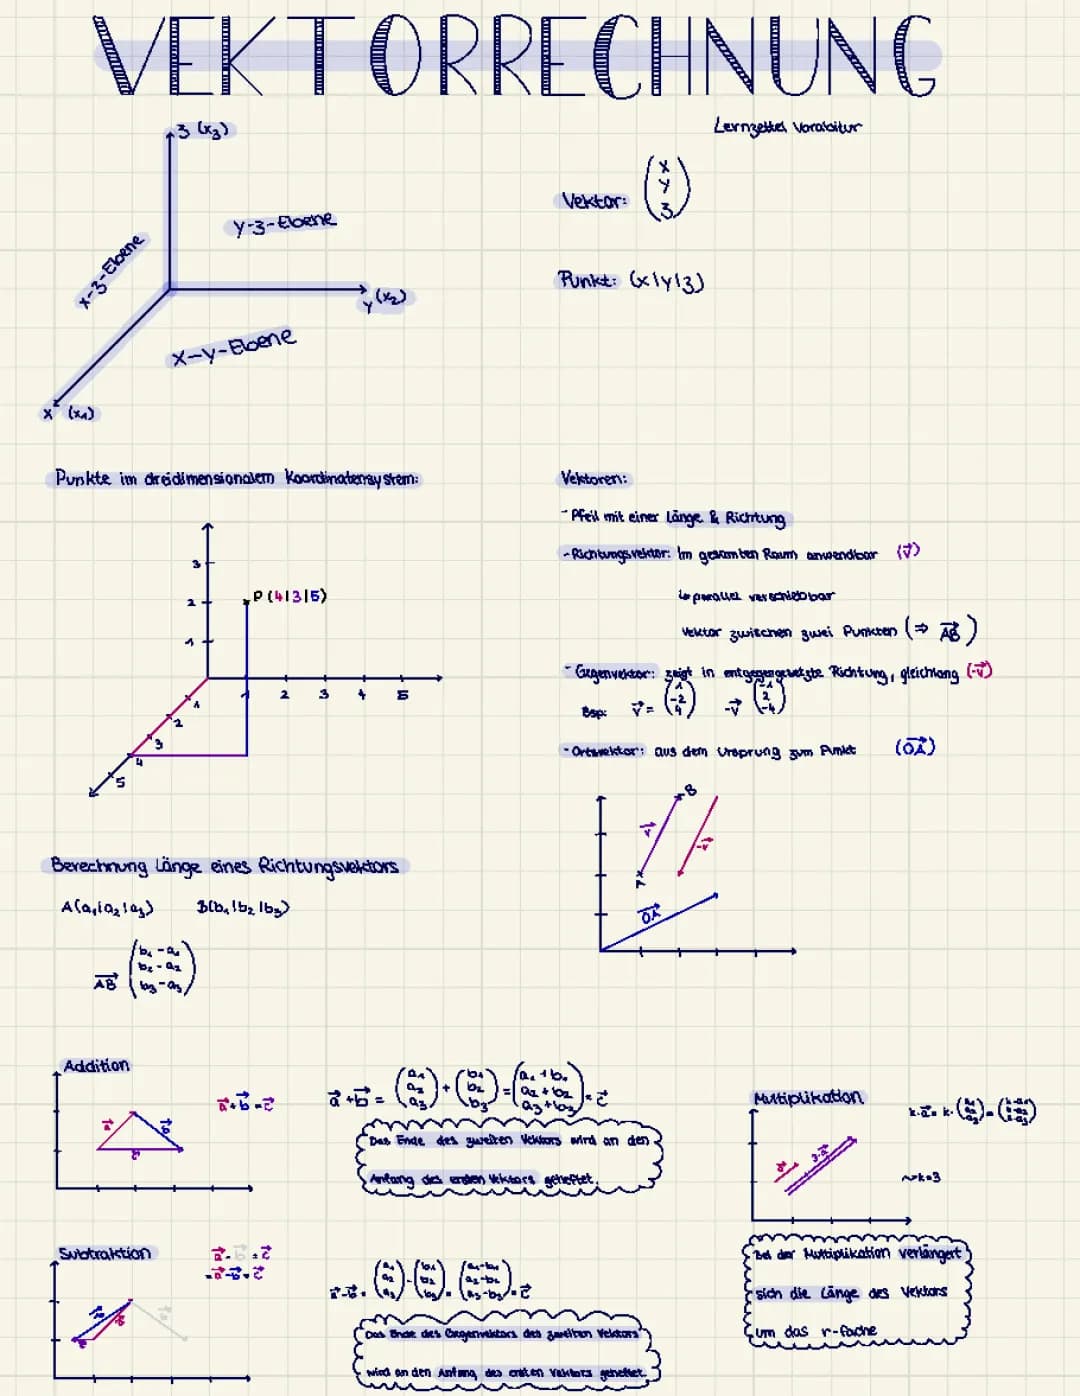 VEKTORRECHNUNG
Lernzettel Vorabitur
3 (x₃)
y-3-Ebene
x-3-Ebene
y (x₂)
x-y-Ebene
x (x₁)
Vektor: (x y 3)
Punkt: (x|y|3)
Punkte im dreidimensionalem Koordinatensystem:
3
2
1
P (4|3|5)
1 2 3 4 5
1
2
3
4
5
Vektoren:
- Pfeil mit einer Länge & Richtung
- Richtungsvektor: im gesamten Raum anwendbar (v⃗)
↳ parallel verschiebbar
Vektor zwischen zwei Punkten (⇒ AB⃗)
- Gegenvektor: zeigt in entgegengesetzte Richtung, gleichlang (-v⃗)
Bsp: v⃗ = (1 -2 4) -v⃗ (-1 2 -4)
- Ortsvektor: aus dem Ursprung zum Punkt (OA⃗)
B
v⃗
-v⃗
OA⃗
Berechnung Länge eines Richtungsvektors
A(a₁|a₂|a₃) B(b₁|b₂|b₃)
AB⃗ (b₁-a₁ b₂-a₂ b₃-a₃)
Addition
a⃗+b⃗=c⃗
a⃗
b⃗
c⃗
a⃗+b⃗ = (a₁ a₂ a₃) + (b₁ b₂ b₃) = (a₁+b₁ a₂+b₂ a₃+b₃) = c⃗
Das Ende des zweiten Vektors wird an den
Anfang des ersten Vektors geheftet.
Multiplikation
k·a⃗ = k·(a₁ a₂ a₃) = (k·a₁ k·a₂ k·a₃)
a⃗
3·a⃗
~k=3
Bei der Multiplikation verlängert
sich die Länge des Vektors
um das r-fache
Subtraktion
a⃗-b⃗=c⃗
=a⃗-b⃗=c⃗
a⃗-b⃗= (a₁ a₂ a₃) - (b₁ b₂ b₃) = (a₁-b₁ a₂-b₂ a₃-b₃) = c⃗
Das Ende des Gegenvektors des zweiten Vektors
wird an den Anfang des ersten Vektors geheftet.